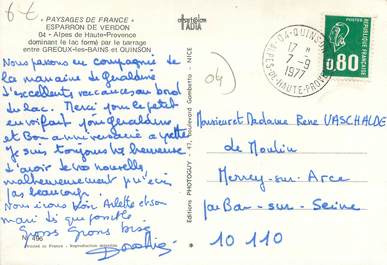 6 €
« PAYSAGES DE FRANCE »
ESPARRON DE VERDON
04 - Alpes de Haute-Provence
dominant le lac formé par le barrage
entre GREOUX-les-BAINS et QUINSON
Nous passons en compagnie de
la marraine de Géraldine
d'excellents vacances au bord
du lac. Merci pour le petit
pour Géraldine
et Bon anniversaire à
Je suis toujours heureuse
d'avoir de vos nouvelles
malheureusement je n'écris
pas beaucoup.
Nous irons voir Arlette et son
mari dès que possible.
Gros Gros bises
N° 496
Printed in France - Reproduction interdite
ADIA
Editions PHOTOGUY - 47, Boulevard Gambetta - NICE
04)
04-QUINSON
17 H
7-9
1977
ALPES-DE-HAUTE-PROVENCE
0,80
Monsieur et Madame René VASCHALDE
de Moulin
Merrey-sur-Arce
par Bar-sur-Seine
10 110